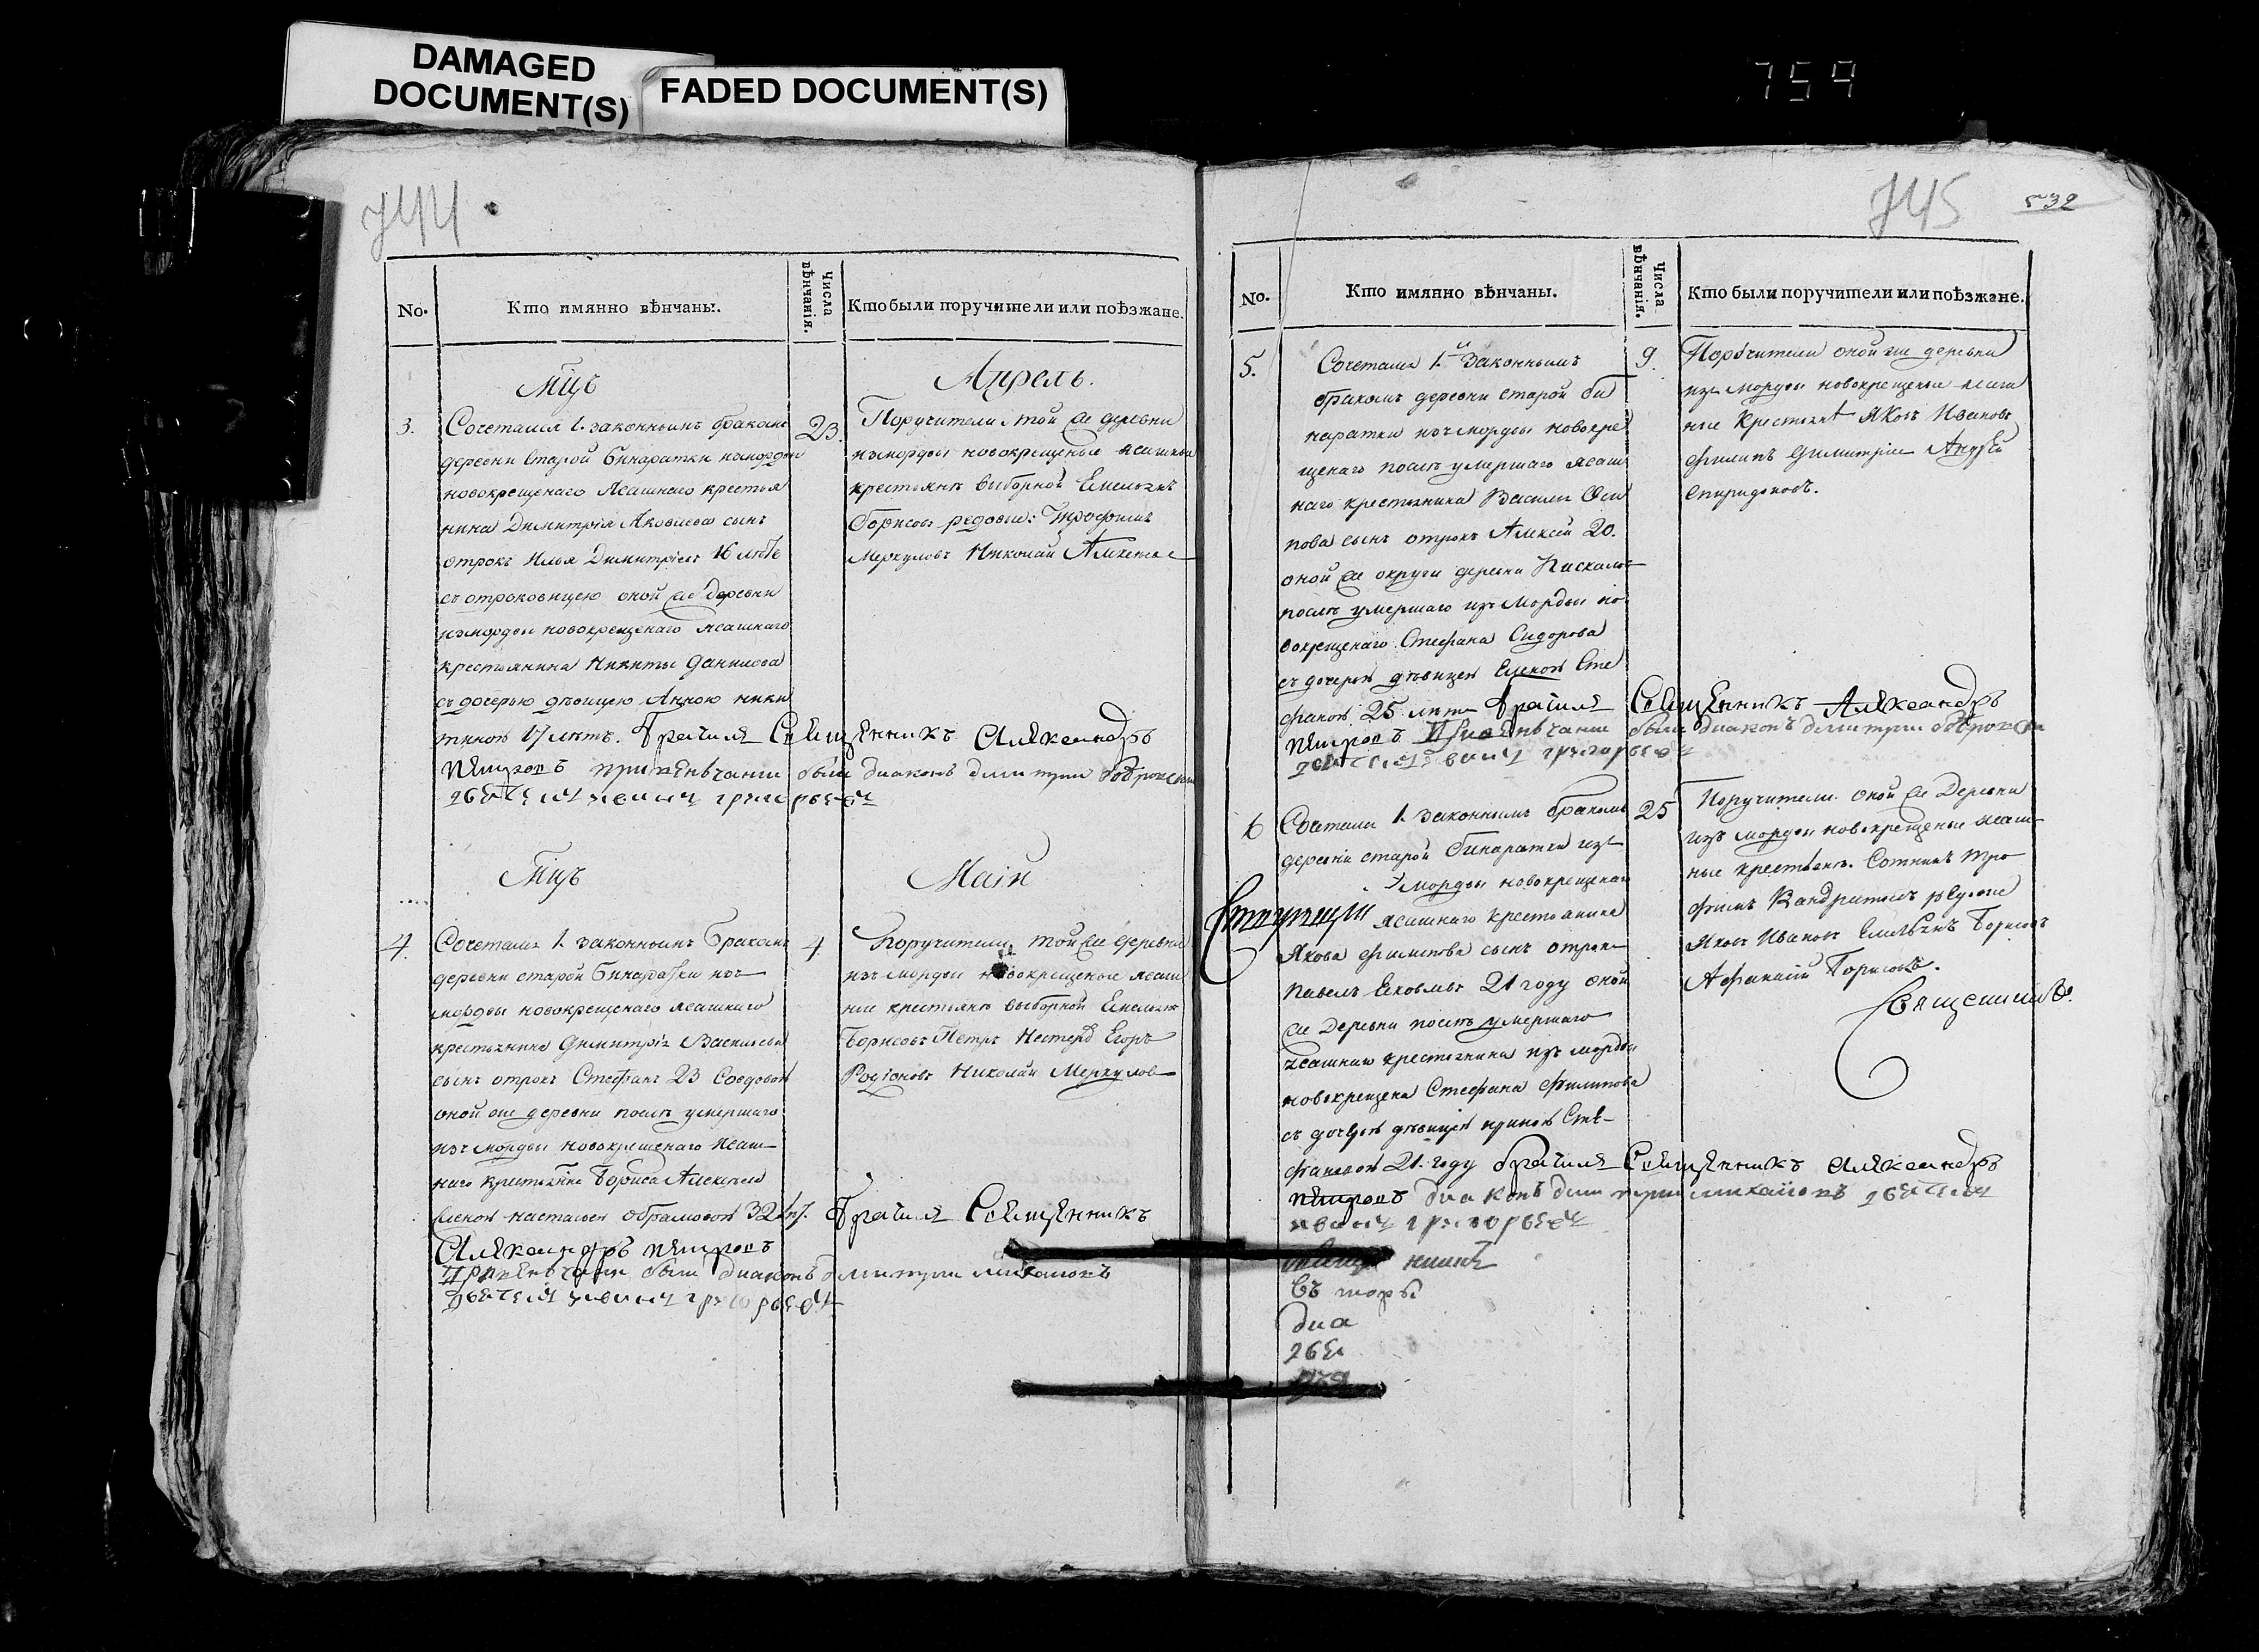 DAMAGED
DOCUMENT(S)
FADED DOCUMENT(S)
759
744
No.
Кто имянно вѣнчаны.
Числа вѣнчанія.
Кто были поручители или поѣзжане.
Мцъ
Апрель.
3.
Сочетался 1. законнымъ бракомъ
деревни Старой Бинаратки изъмордвы
новокрещенаго Ясашнаго крестья
нина Димитрія Яковлева сынъ
отрокъ Илья Димитріевъ 16 лѣтъ
съ отроковицею оной же деревни
изъмордвы новокрещенаго ясашнаго
крестьянина Никиты Данилова
съ дочерью дѣвицею Анною Ники
тиною 17 лѣтъ. Брачилъ Священникъ Александръ
петровъ при венчани были диаконъ димитри
23.
Поручители той же деревни
изъмордвы новокрещеные ясашные
крестьянѣ выборной Емельянъ
Борисовъ редовые: Трофимъ
Меркуловъ Николай
Мцъ
Маіи
4.
Сочетался 1. законнымъ бракомъ
деревни старой Бинаратки изъ
мордвы новокрещенаго ясашнаго
крестьянина Димитрія Василева
сынъ отрокъ Стефанъ 23 Соедовой
оной же деревни послѣ умершаго
изъ мордвы новокрещенаго Ясаш
наго крестьянина Бориса Алексѣева
32 Брачилъ Священникъ
Александръ петровъ
При венчани были диаконъ димитри михаиловъ
4.
Поручители той же деревни
изъ мордвы новокрещеные ясаш
ные крестьянѣ выборной Емельянъ
Борисовъ Петръ Егоръ
Родіоновъ Николай Меркулов
745
532
No.
Кто имянно вѣнчаны.
Числа вѣнчанія.
Кто были поручители или поѣзжане.
5.
Сочетался 1.й законнымъ
бракомъ деревни старой Би
наратки изъ мордвы новокре
щенаго послѣ умершаго ясаш
наго крестьянина Василия Оси
пова сынъ отрокъ Алексѣй 20.
оной же округи деревни
послѣ умершаго изъ Мордвы но
вокрещенаго Стефана Сидорова
съ дочерью дѣвицею Еленою Сте
фановою 25 Брачилъ Священникъ Александръ
петровъ При венчани были диаконъ димитри
9.
Поручители оной же деревни
изъ мордвы новокрещеные ясаш
ные Крестьянѣ Яковъ Ивановъ
Филипъ Димитріев Андрей
Спиридоновъ.
6
Сочетался 1. законнымъ бракомъ
деревни старой Бинаратки изъ
мордвы новокрещенаго
ясашнаго крестьянина
Якова Филипова сынъ отрокъ
Павелъ Яковлевъ 21 году оной
же деревни послѣ умершаго
ясашнаго крестьянина изъ мордвы
новокрещена Стефана Филипова
съ дочерю дѣвицею Ириною Сте-
фановой 21. году брачилъ Священникъ Александръ
петровъ диаконъ димитри михаиловъ
25
Поручители оной же Деревни
изъ мордвы новокрещеные ясаш-
ные крестьянѣ. Сотникъ Тро
фимъ
Яковъ Ивановъ Емельянъ Борисовъ
Афанасий Борисовъ.
Священникъ
диа